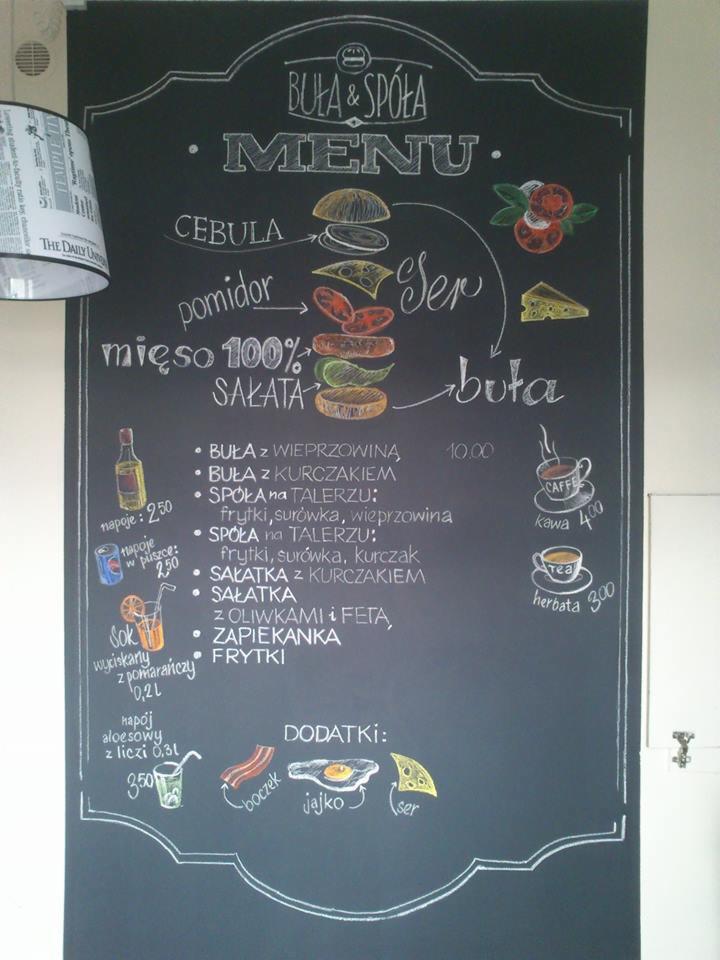 BUŁA & SPÓŁA
MENU
CEBULA
Ser
pomidor
mięso 100%
SAŁATA
buła
• BUŁA z WIEPRZOWINĄ 10.00
• BUŁA z KURCZAKIEM
• SPÓŁA na TALERZU:
frytki, surówka, wieprzowina
• SPÓŁA na TALERZU:
frytki, surówka, kurczak
• SAŁATKA z KURCZAKIEM
• SAŁATKA
z OLIWKAMI i FETĄ
• ZAPIEKANKA
• FRYTKI
napoje: 2 50
napoje
w puszce:
2 50
Sok
wyciskany
z pomarańczy
0,2 l
napój
aloesowy
z liczi 0,3 l
3 50
CAFFE
kawa 4 00
TEA
herbata 3 00
DODATKI:
boczek
jajko
ser
THE DAILY